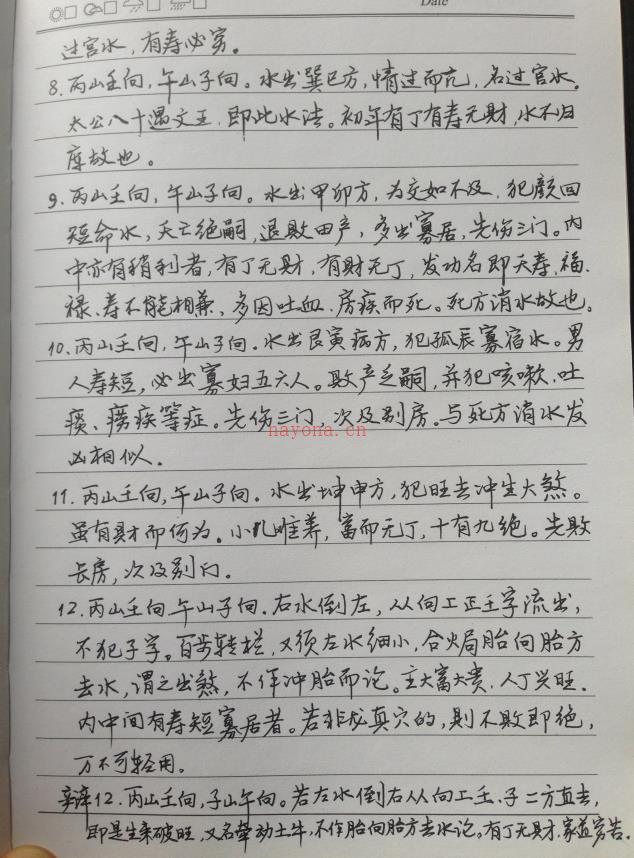 Date
过宫水，有寿必穷。
8.丙山壬向，午山子向。水出巽巳方，情过而亢，名过宫水，
太公八十遇文王，即此水法。初年有丁有寿无财，水不归
库故也。
9.丙山壬向，午山子向。水出甲卯方，为交如不及，犯颜回
短命水，夭亡绝嗣，退败田产，多出寡居，先伤三门。内
中亦有稍利者，有丁无财，有财无丁，发功名即夭寿，福、
禄、寿不能相兼，多因吐血、房疾而死。死方消水故也。
10.丙山壬向，午山子向。水出艮寅病方，犯孤辰寡宿水。男
人寿短，必出寡妇五六人。败产乏嗣，并犯咳嗽、吐
痰、痨疾等症。先伤三门，次及别房。与死方消水发
凶相似。
hayona.cn
11.丙山壬向，午山子向。水出坤申方，犯旺去冲生大煞。
虽有财而何为。小儿难养，富而无丁，十有九绝。先败
长房，次及别门。
12.丙山壬向午山子向.右水倒左，从向上正壬字流出，
不犯子字。百步转栏，又须左水细小，合火局胎向胎方
去水，谓之出煞，不作冲胎而论。主大富大贵，人丁兴旺.
内中间有寿短寡居者。若非龙真穴的，则不败即绝，
万不可轻用。
辩12.丙山壬向，子山午向。若左水倒右从向上壬、子二方直去，
即是生来破旺，又名牵动土牛，不作胎向胎方去水论。有丁无财，家道穷苦.